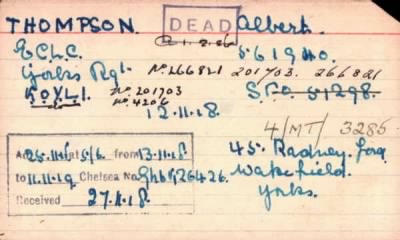 THOMPSON. DEAD Albert.
E.C.L.C. 5619 40.
Yorks Rgt. No. 266821 201703. 266821
K.O.Y.L.I. No. 201703 S.F.O. 51298.
No. 4206
12.11.18.
4/MT/ 3285
25.11.18 at 5/6 from 13.11.18. 45. Radney
to 11.11.19 Chelsea No. 26426. Wakefield.
Received 27.1.18. Yorks.